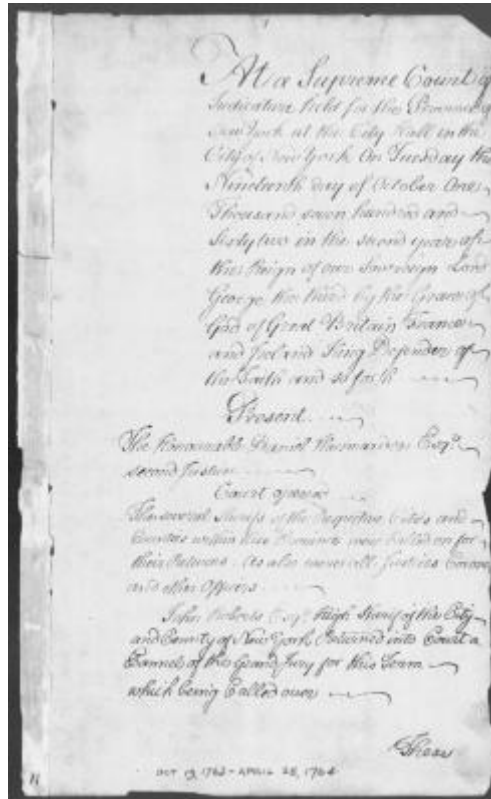 At a Supreme Court of
Judicature held for the Province of
New York at the City Hall in the
City of New York On Tuesday the
Nineteenth day of October One
Thousand seven hundred and
Sixty two in the second year of
the Reign of our Sovereign Lord
George the third by the Grace of
God of Great Britain France
and Ireland King Defender of
the Faith and so forth
Present
The Honourable Daniel Horsmanden Esqr.
second Justice
Court opened
The several Sherifs of the Respective Cities and
Counties within this Province were Called on for
their Returns As also were all Justices Coroners
and other Officers
John Roberts Esqr. High Sherif of the City
and County of New York Returned into Court a
Pannel of the Grand Jury for this Term
which being Called over
OCT 19, 1762 - APRIL 28, 1764